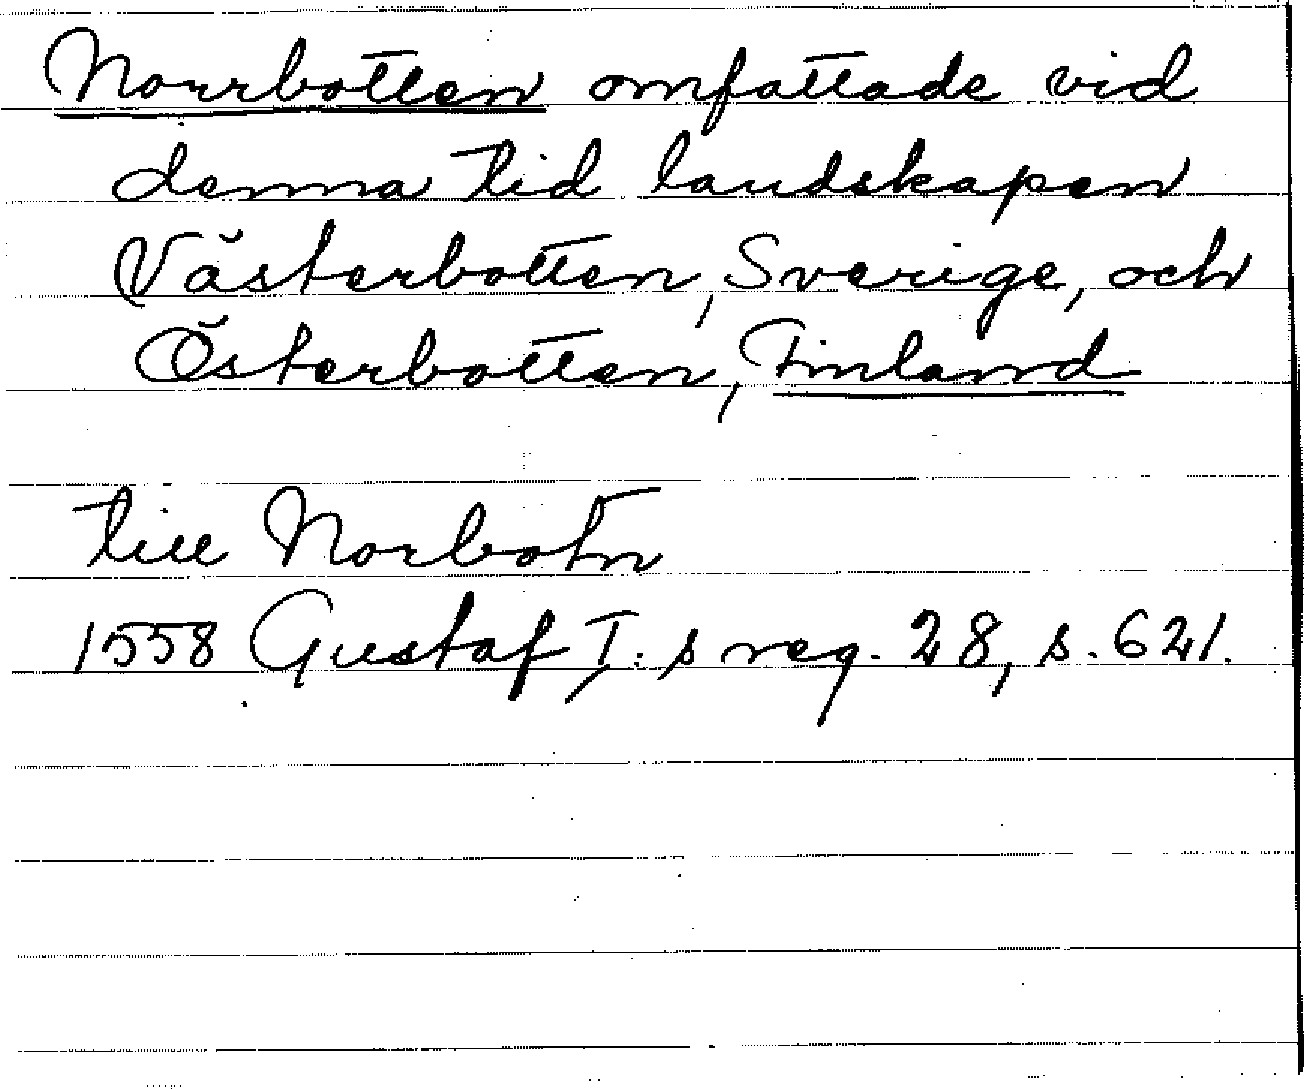 Norrbotten omfattade vid
denna tid landskapen
Västerbotten, Sverige, och
Österbotten, Finland
till Norbotn
1558 Gustaf I:s reg. 28, s. 621.